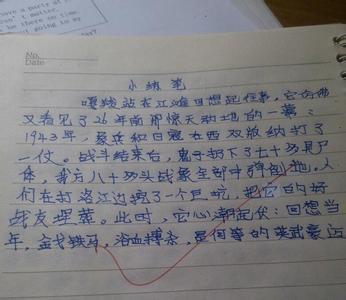 have a party at
n't matter.
be there on time.
going to my
No.
Date
小练笔
嘎羧站在江滩回想起往事,它仿佛
又看见了26年前那惊天动地的一幕:
1943年,象兵和日寇在西双版纳打了
一仗。战斗结束后,鬼子扔下了七十多具尸
体,我方八十多头战象全部中弹倒地,人
们在打洛江边挖了一个巨坑,把它的好
战友埋葬。此时,它心潮起伏:回想当
年,金戈铁马,浴血搏杀,是何等的英武豪迈